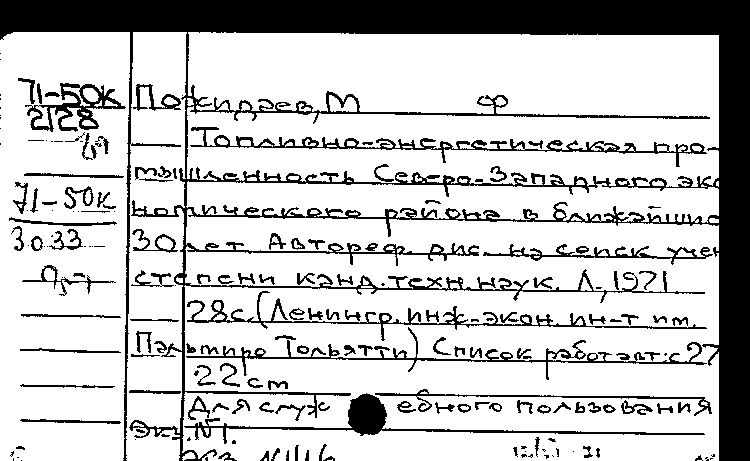 71-50К
2128
Пожидаев, М Ф
Топливно-энергетическая про-
мышленность Северо-Западного эко
71-50К
номического района в ближайшие
3033
30 лет Автореф. дис. на соиск учен
степени канд. техн. наук. Л., 1971
28с. (Ленингр. инж-экон. ин-т им.
Пальмиро Тольятти) Список работ авт: с 27
22 cm
Для служебного пользования
Экз. №1.